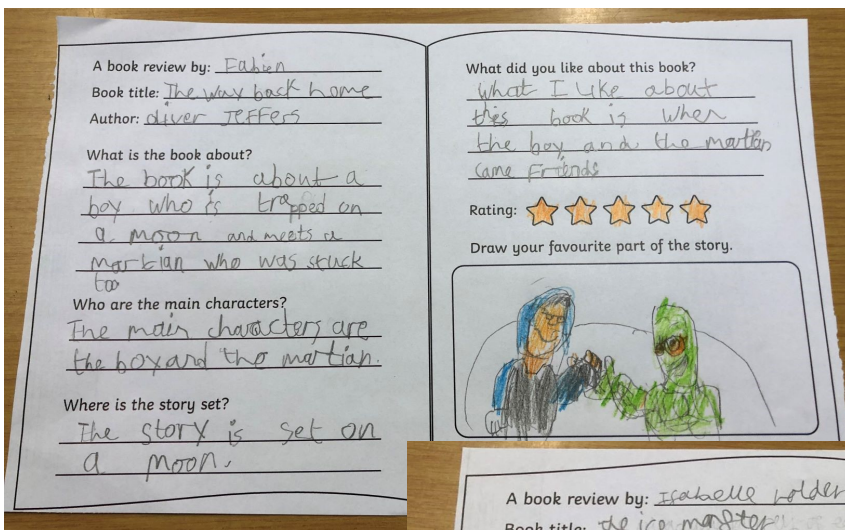 A book review by: Fabien
Book title: The way back home
Author: oliver Jeffers
What is the book about?
The book is about a
boy who is trapped on
a moon and meets a
martian who was stuck
too
Who are the main characters?
The main characters are
the boy and the martian.
Where is the story set?
The story is set on
a moon.
What did you like about this book?
What I like about
this book is when
the boy and the martian
came Friends
Rating:
Draw your favourite part of the story.
A book review by: Isabelle Holder
Book title: the iron monster